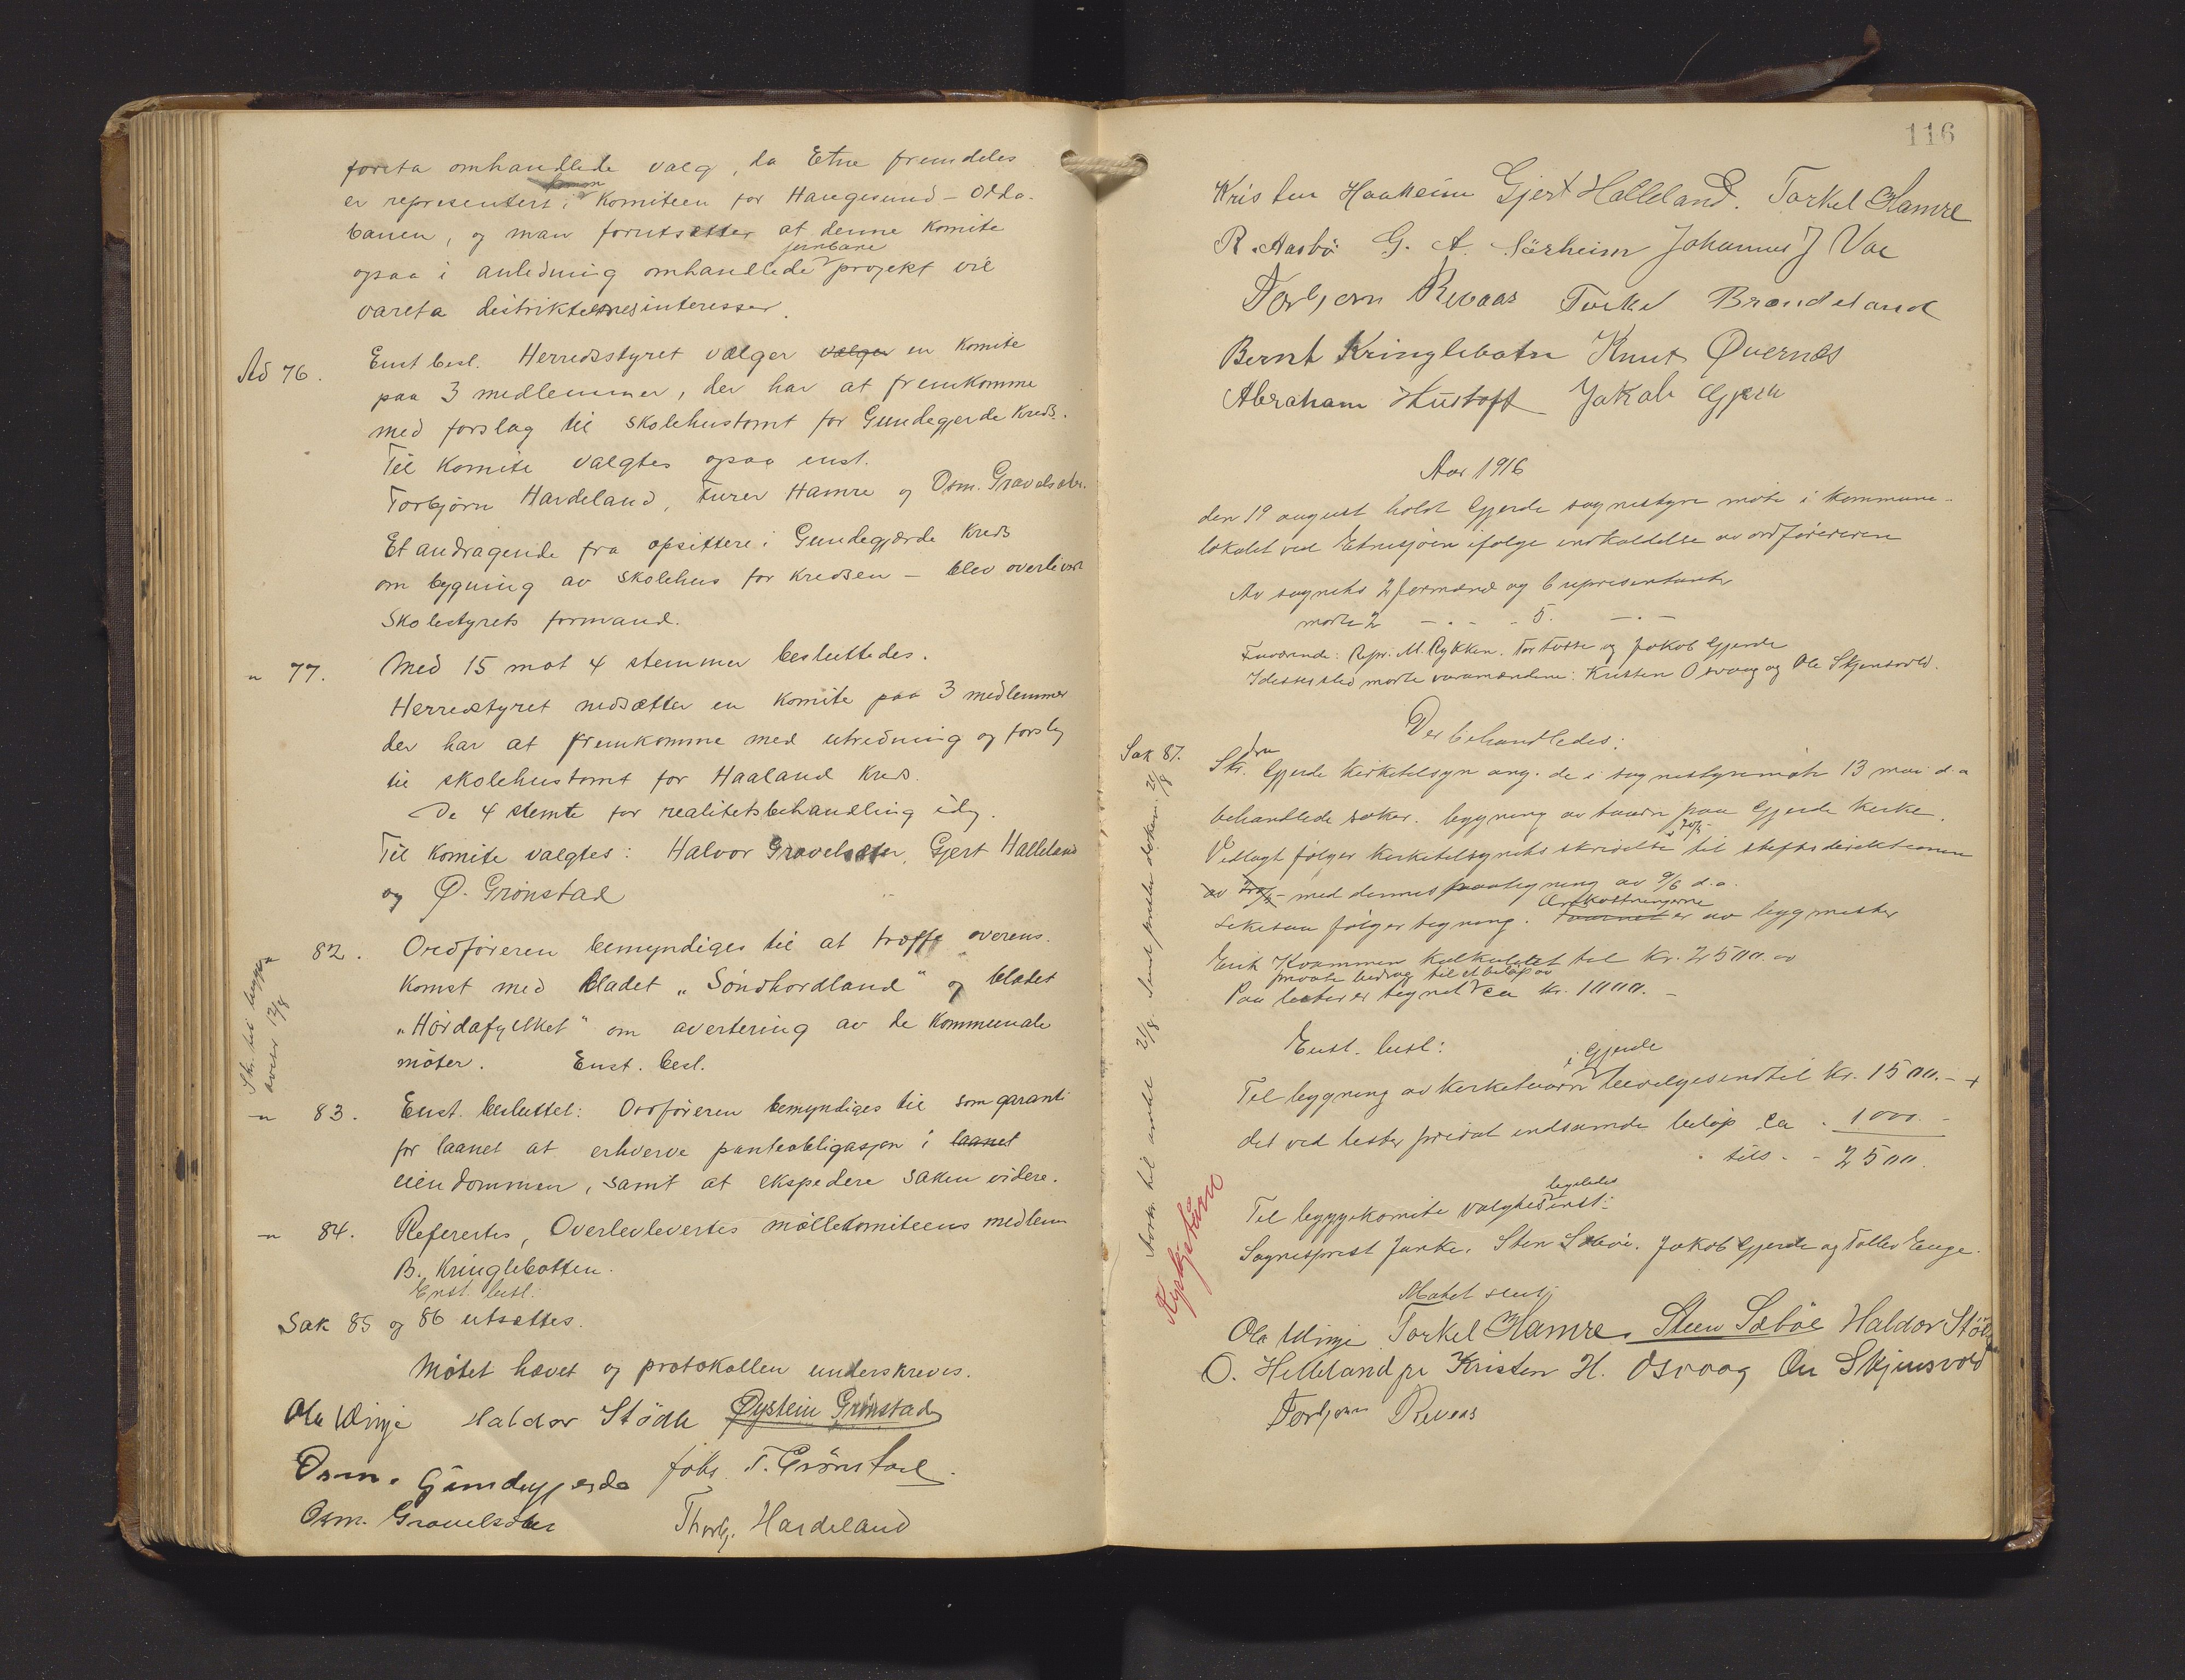 foreta omhandlede valg, da Etne fremdeles
er representert i Komiteen for Haugesund – Odda-
banen, og man forutsætter at denne Komite
jernbane
ogsaa i anledning omhandlede projekt vil
vareta distrikternes interesser.
Ad 76. Enst besl. Herredsstyret vælger vælger en Komite
paa 3 medlemmer, der har at fremkomme
med forslag til skolehustomt for Gundegjerde Kreds.
Til Komite valgtes ogsaa enst.
Torbjørn Hardeland, Furer Hamre og Osm. Gravelsæter.
Et andragende fra opsittere i Gundegjærde Kreds
om bygning av skolehus for Kredsen – blev overlevert
Skolestyrets formand.
" 77. Med 15 mot 4 stemmer besluttedes.
Herredstyret nedsætter en Komite paa 3 medlemmer
der har at fremkomme med utredning og forslag
til skolehustomt for Haaland Kreds.
De 4 stemte for realitetsbehandling idag.
Til Komite valgtes: Halvor Gravelsæter, Gjert Halleland
og Ø. Grønstad
" 82. Ordføreren bemyndiges til at træffe overens-
Komst med bladet „Søndhordland" og bladet
„Hordafylket" om avertering av de Kommunale
møter. Enst. besl.
" 83. Enst. besluttet: Ordføreren bemyndiges til som garanti
for laanet at erhverve panteobligasjon i laanet
eiendommen, samt at ekspedere saken videre.
" 84. Referertes, Overlevlevertes møllekomiteens medlem
B. Kringlebotten.
Enst. besl.
Sak 85 og 86 utsættes.
Møtet hævet og protokollen underskreves.
Ole Vinje Haldor Stødle Øystein Grønstad
Osm. Gundegjerde Johs. T. Grønstad.
Osm. Gravelsæter Thorbj. Hardeland
116
Kristen Haaheim Gjert Halleland. Torkel Hamre
R. Aasbø G. A. Sørheim Johannes J Vae
Torbjørn Revaas Torkel Brændeland
Bernt Kringlebotn Knut Øvernes
Abraham Hustoft Jakob Gjerde
Aar 1916
den 19 august holdt Gjerde sognestyre møte i kommune-
lokalet ved Etnesjøen ifølge indkaldelse av ordføreren
Av sognets 2 formænd og 6 representanter
møtte 2 – . – . 5. – . –
Fraværende: Repr. M. Rykken, Tor Tesse og Jakob Gjerde
I deres sted møtte varamændene: Kristen Osvaag og Ole Skjensvold.
Der behandledes:
Sak 87. Skr. fra Gjerde kirketilsyn ang. de i sognestyremøte 13 mai d.a
behandlede saker. bygning av taarn paa Gjerde kirke.
Vedlagt følger kirketilsynets skrivelse 20/5 til stiftsdirektionen
av 20/5 – med dennes paategning av 9/6 d.a.
Omkostningerne
Likesaa følger tegning. Taarnet er av bygmester
Erik Kvammen kalkulert til kr. 2500.00
private bidrag til et beløp av
Paa lister er tegnet ca kr. 1000.–
Enst. besl:
i Gjerde
Til bygning av kirketaarn bevilges indtil kr. 1500.– +
det ved lister privat indsamlede beløp ca . 1000 –
tils. – 2500.
ligeledes
Til byggekomite valgtes enst:
Sogneprest Junke, Sten Sæbøe, Jakob Gjerde og Tollev Enge.
Møtet slut
Ole Vinje Torkel Hamre. Steen Sæbøe Haldor Stødle
O. Helleland jr Kristen H. Osvaag Ole Skjensvold
Torbjørn Revaas
Kyrkjetårn